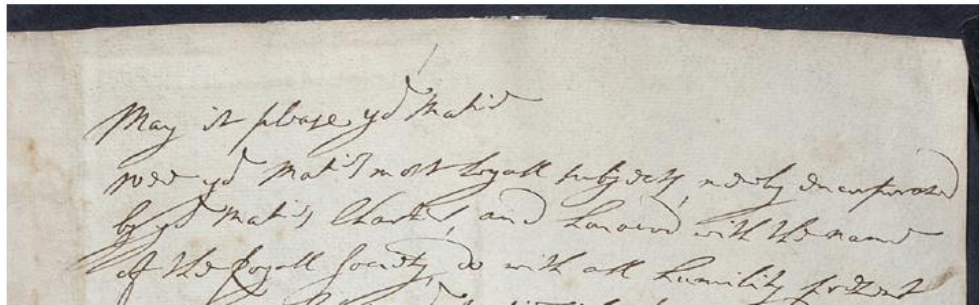 May it please yor Matie
wee yor Maties most loyall subjects, newly incorporated
by yor Maties Charter, and honored with the name
of the Royall Society, do with all humility present